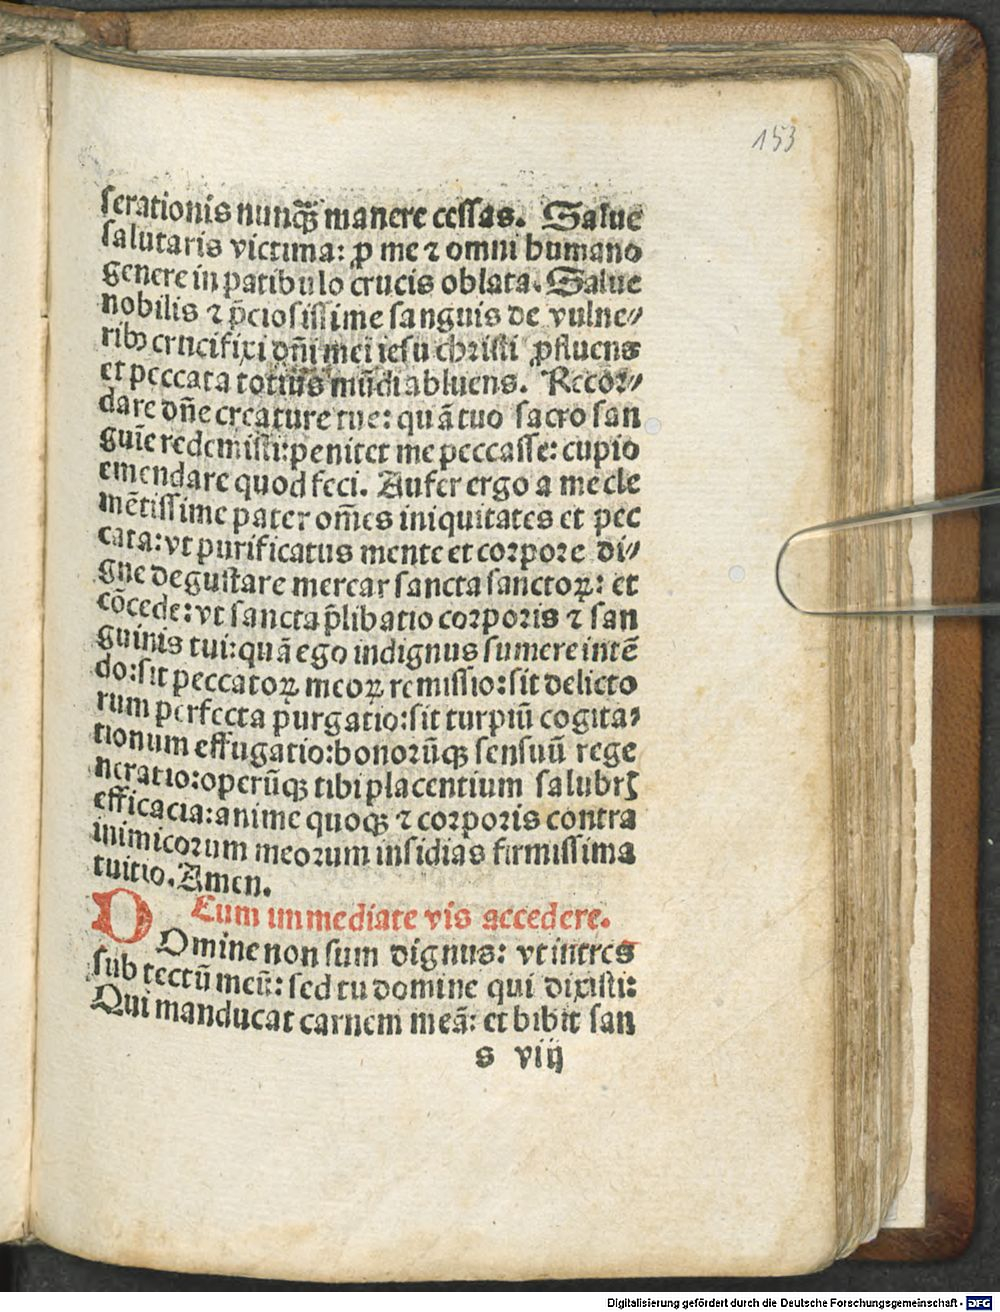 153
serationis nunq̃ʒ manere cessas. Salue
salutaris victima: ꝓ me ⁊ omni humano
genere in patibulo crucis oblata. Salue
nobilis ⁊ p̃ciosissime sanguis de vulne⸗
ribꝰ crucifixi dñi mei iesu christi ꝓfluens
et peccata totius mũdi abluens. Recor⸗
dare dñe creature tue: quã tuo sacro san
guĩe redemisti: penitet me peccasse: cupio
emendare quod feci. Aufer ergo a me cle
mẽtissime pater om̃es iniquitates et pec
cata: vt purificatus mente et corpore di⸗
gne degustare mercar sancta sanctoꝝ: et
cõcede: vt sancta p̃libatio corporis ⁊ san
guinis tui: quã ego indignus sumere intẽ
do: sit peccatoꝝ meoꝝ remissio: sit delicto
rum perfecta purgatio: sit turpiũ cogita⸗
tionum effugatio: bonorũqʒ sensuũ rege
neratio: operũqʒ tibi placentium salubrꝭ
efficacia: anime quoqʒ ⁊ corporis contra
inimicorum meorum insidias firmissima
tuitio. Amen.
Cum immediate vis accedere.
DOmine non sum dignus: vt intres
sub tectũ meũ: sed tu domine qui dixisti:
Qui manducat carnem meã: et bibit san
s viij
Digitalisierung gefördert durch die Deutsche Forschungsgemeinschaft - DFG